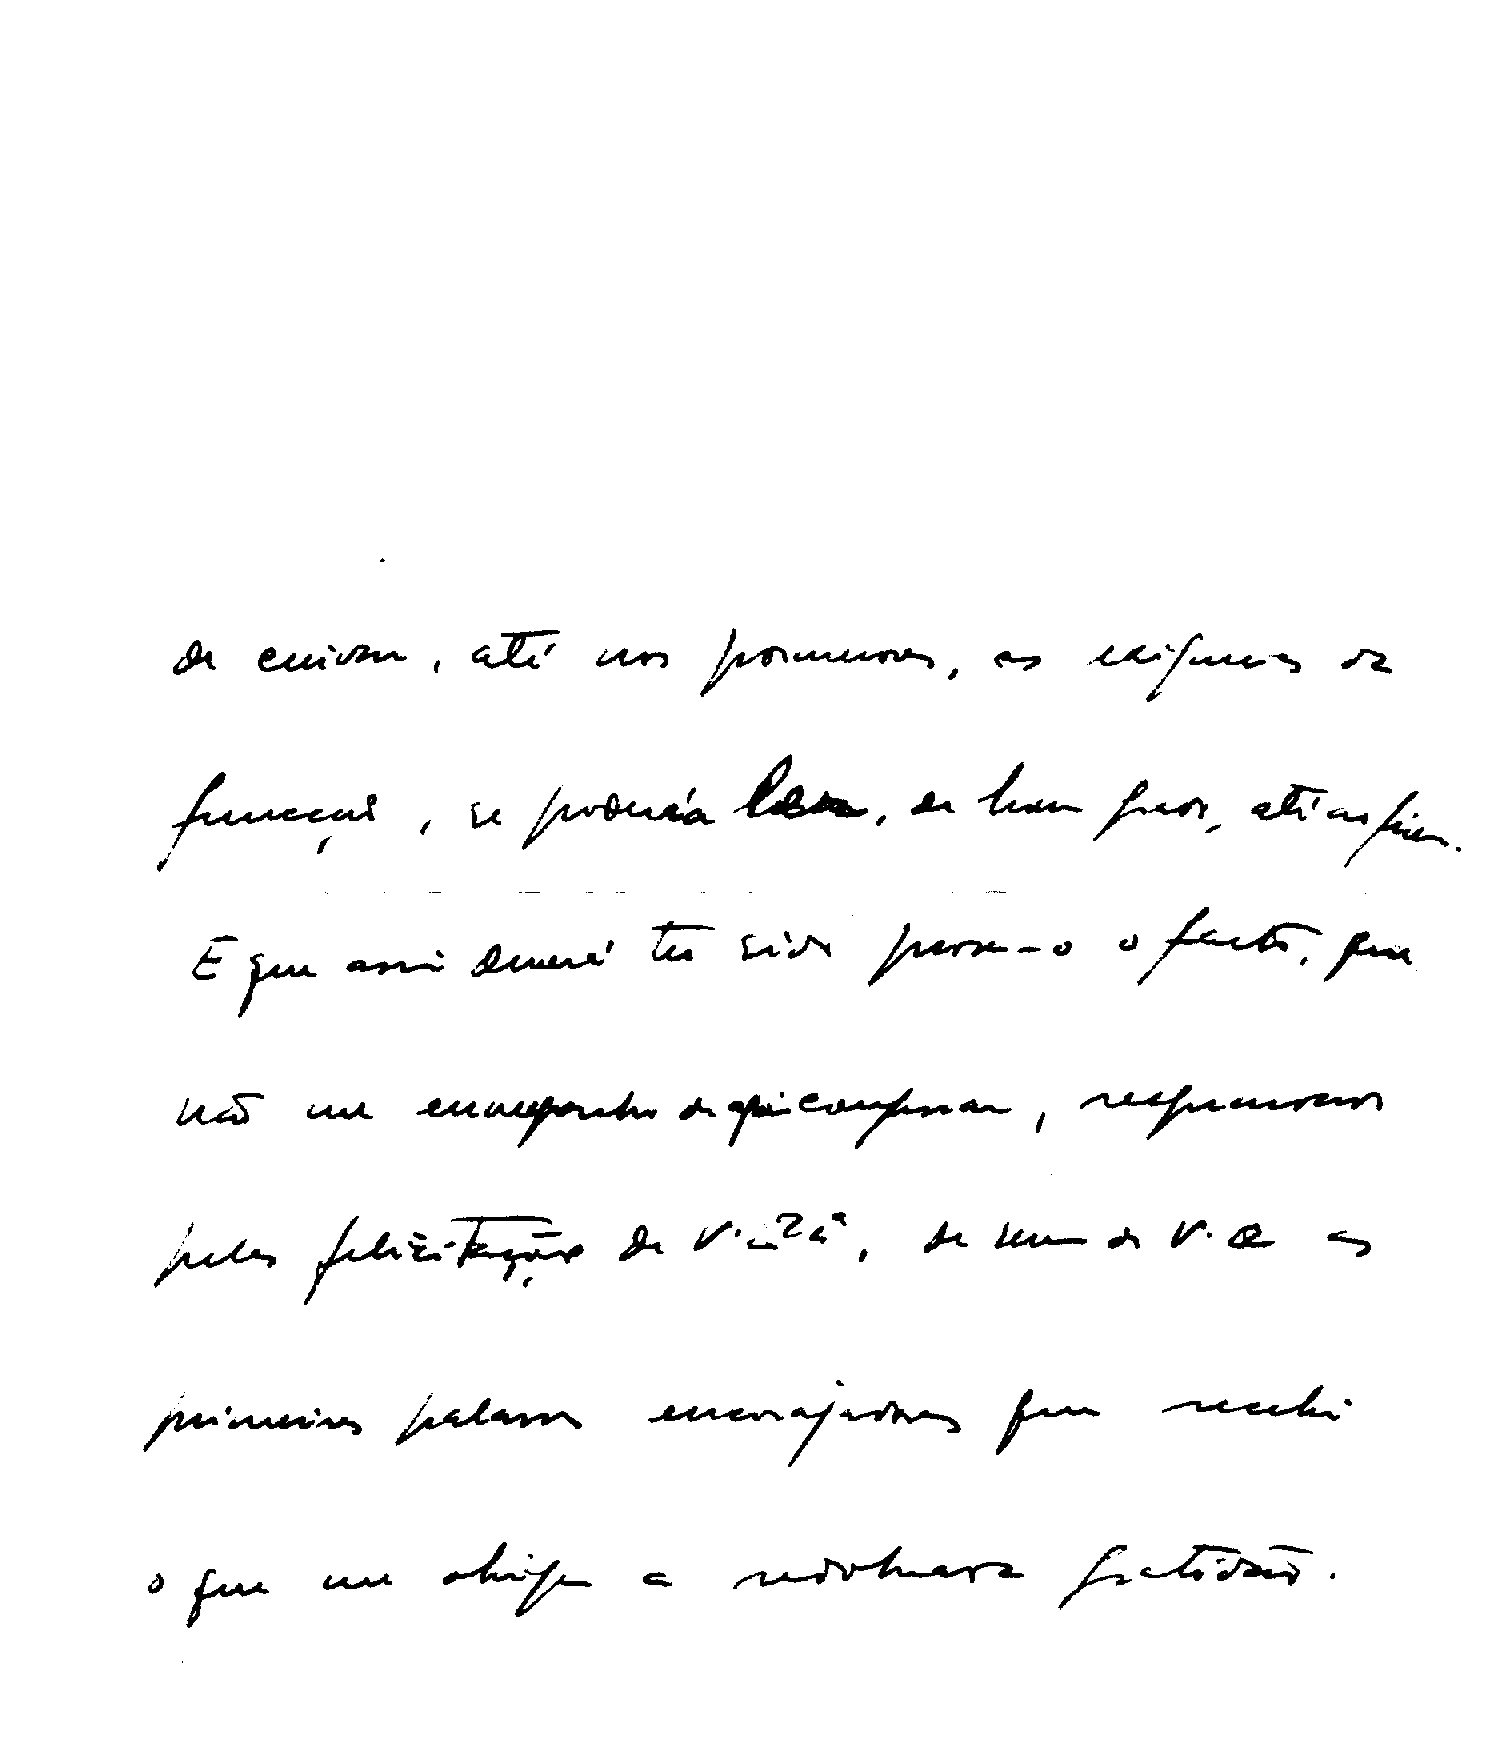 de cuidar, até nos pormenores, as exigencias da
funcção, se poderia ler, de bom grado, até ao fim.
E que assim deverá ter sido prova-o o facto, que
não me envergonho de aqui confessar, respondendo
pelas felicitações de V. Exª, de serem de V. Ex as
primeiras palavras encorajadoras que recebi
o que me obriga a redobrada gratidão.